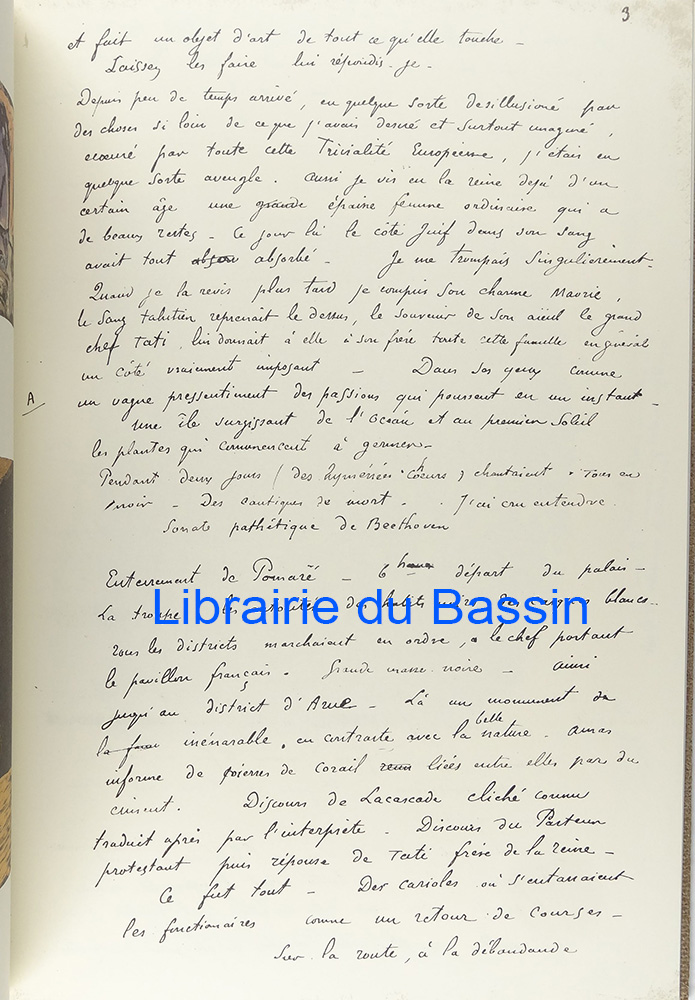 3
et fait un objet d'art de tout ce qu'elle touche —
Laissez les faire lui répondis-je —
Depuis peu de temps arrivé, en quelque sorte desillusioné par
des choses si loin de ce que j'avais desiré et surtout imaginé,
ecœuré par toute cette Trivialité Européenne, j'étais en
quelque sorte aveugle. Aussi je vis en la reine dejà d'un
certain âge une grande épaisse femme ordinaire qui a
de beaux restes — Ce jour là le côté Juif dans son sang
avait tout absorbé — Je me trompais singulierement —
Quand je la revis plus tard je compris son charme Maorie,
le sang tahitien reprenait le dessus, le souvenir de son aïeul le grand
chef Tati, lui donnait à elle à son frère toute cette famille en général
un côté vraiment imposant — Dans ses yeux comme
A
un vague pressentiment des passions qui poussent en un instant —
une île surgissant de l'Océan et au premier soleil
les plantes qui commencent à germer —
Pendant deux jours (des hyménées Chœurs) chantaient. Tous en
noir — Des cantiques de mort. J'ai cru entendre
Sonate pathétique de Beethoven
Enterrement de Pomaré — 6 heures départ du palais —
La troupe les autorités des habits noirs des casques blancs —
Tous les districts marchaient en ordre, & le chef portant
le pavillon français. Grande masse noire — ainsi
jusqu'au district d'Arue — Là un monument
inénarable, en contraste avec la belle nature. amas
informe de pierres de corail liées entre elles par du
ciment. Discours de Lacascade cliché connu
traduit après par l'interpiète — Discours du Pasteur
protestant puis réponse de Tati frère de la reine —
Ce fut tout — Des carioles où s'entassaient
les fonctionaires comme un retour de courses —
Sur la route, à la débandande
Librairie du Bassin